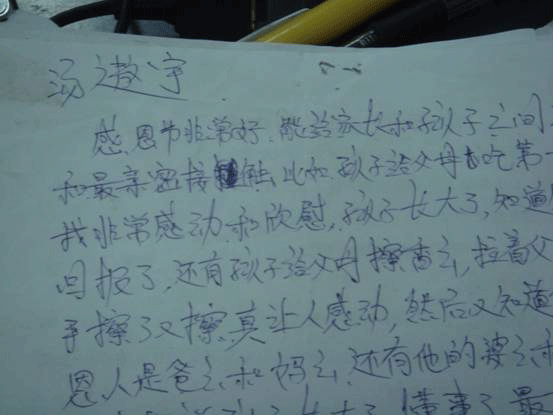 汤遨宇
感恩节非常好.能给家长和孩子之间
和最亲密接触.比如孩子给父母长吃第一
我非常感动和欣慰,孩子长大了,知道
回报了,还有孩子给父母擦香,拉着父
手擦了又擦,真让人感动,然后又知道
恩人是爸和妈,还有他的婆和